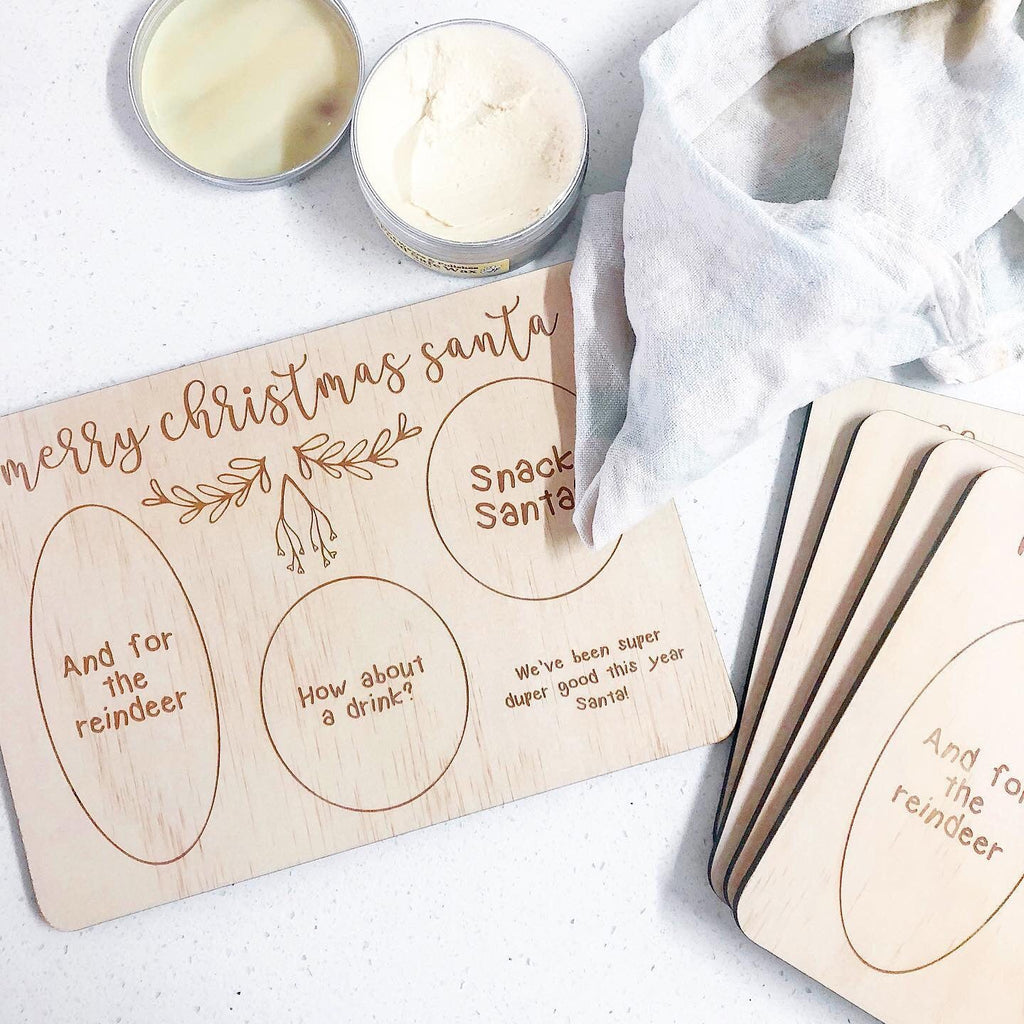 merry christmas santa
Snack
Santa
And for
the
reindeer
How about
a drink?
We've been super
duper good this year
Santa!
And for
the
reindeer
Wax